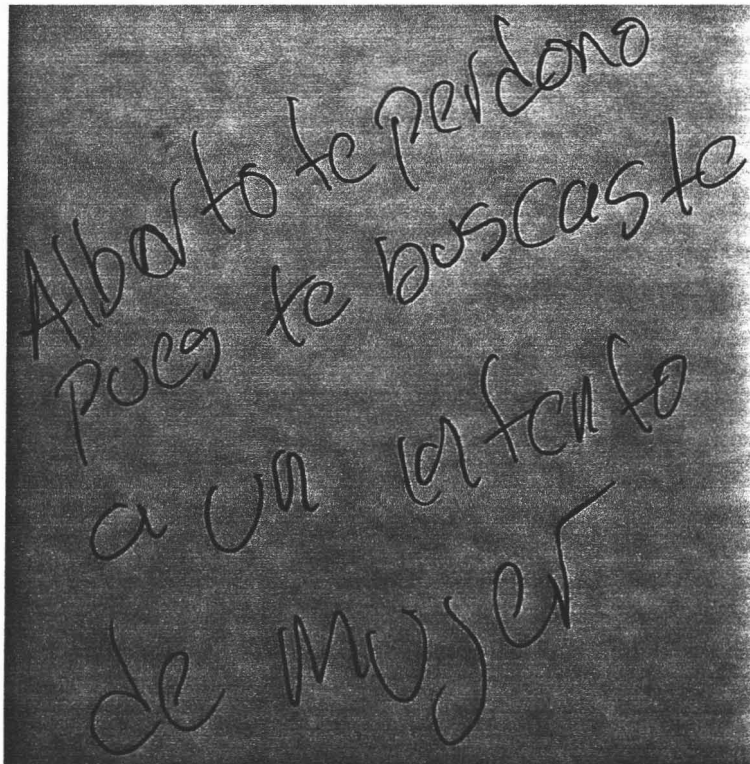 Alberto te perdono
pues te buscaste
a un intento
de mujer